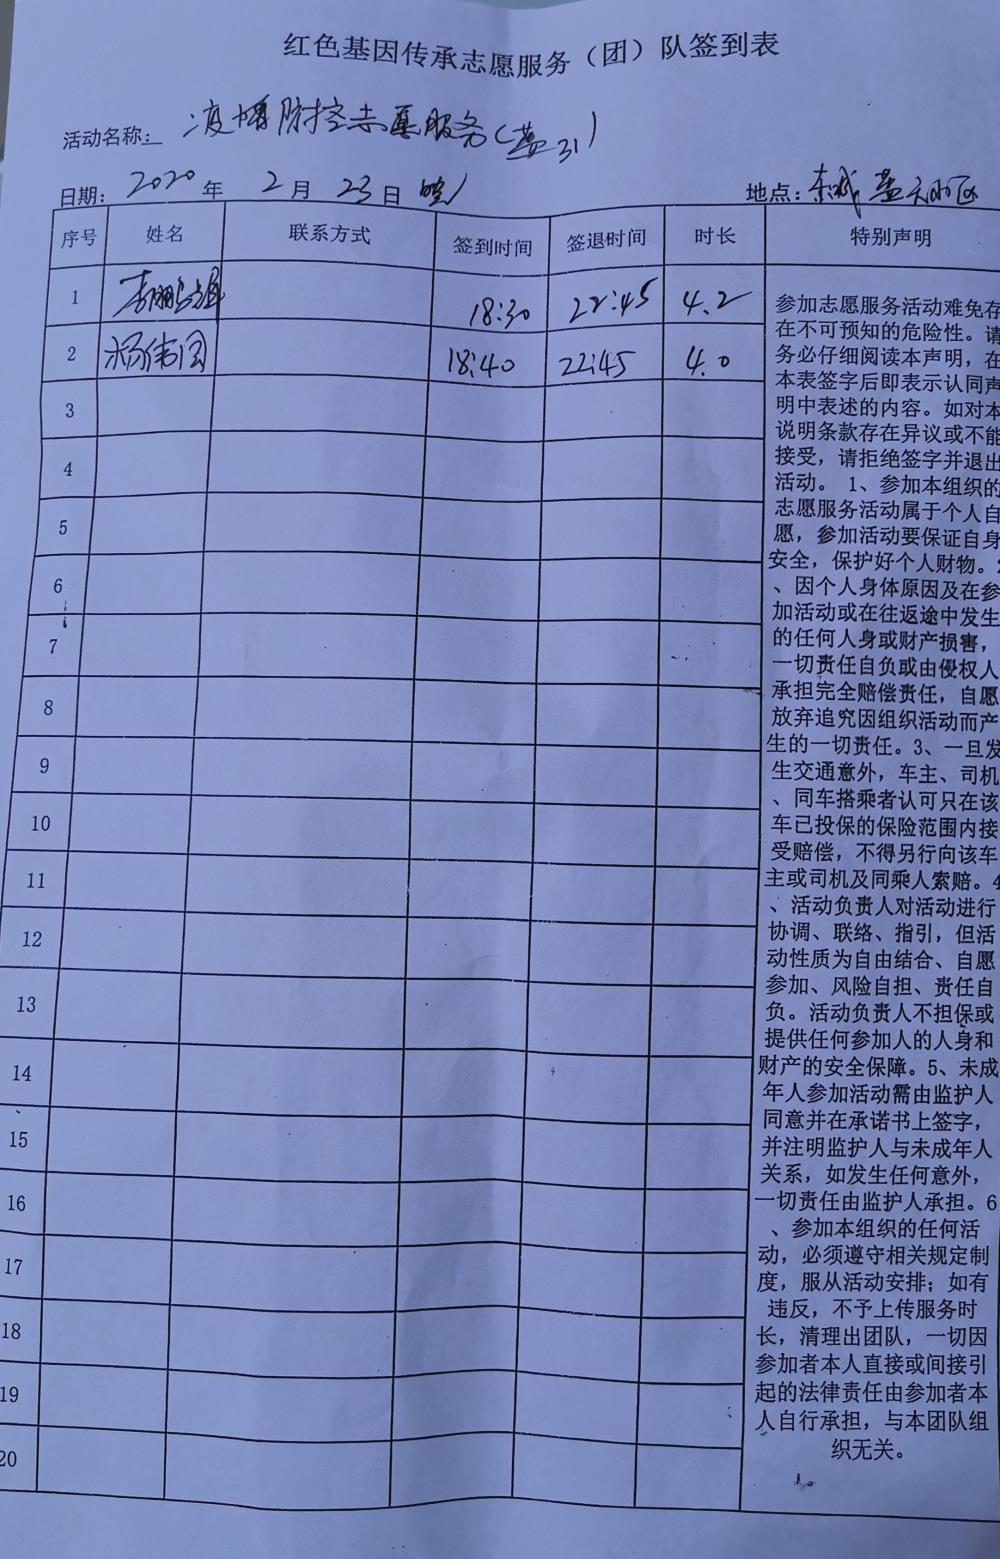 红色基因传承志愿服务（团）队签到表
活动名称: 疫情防控志愿服务(
日期: 2020 年 2 月 23 日 晚
地点: 东城
序号 姓名 联系方式 签到时间 签退时间 时长 特别声明
1 18:30 22:45 4.2
2 杨伟国 18:40 22:45 4.0
3
4
5
6
7
8
9
10
11
12
13
14
15
16
17
18
19
20
参加志愿服务活动难免存
在不可预知的危险性。请
务必仔细阅读本声明，在
本表签字后即表示认同声
明中表述的内容。如对本
说明条款存在异议或不能
接受，请拒绝签字并退出
活动。 1、参加本组织的
志愿服务活动属于个人自
愿，参加活动要保证自身
安全，保护好个人财物。2
、因个人身体原因及在参
加活动或在往返途中发生
的任何人身或财产损害，
一切责任自负或由侵权人
承担完全赔偿责任，自愿
放弃追究因组织活动而产
生的一切责任。3、一旦发
生交通意外，车主、司机
、同车搭乘者认可只在该
车已投保的保险范围内接
受赔偿，不得另行向该车
主或司机及同乘人索赔。4
、活动负责人对活动进行
协调、联络、指引，但活
动性质为自由结合、自愿
参加、风险自担、责任自
负。活动负责人不担保或
提供任何参加人的人身和
财产的安全保障。5、未成
年人参加活动需由监护人
同意并在承诺书上签字，
并注明监护人与未成年人
关系，如发生任何意外，
一切责任由监护人承担。6
、参加本组织的任何活
动，必须遵守相关规定制
度，服从活动安排；如有
违反，不予上传服务时
长，清理出团队，一切因
参加者本人直接或间接引
起的法律责任由参加者本
人自行承担，与本团队组
织无关。